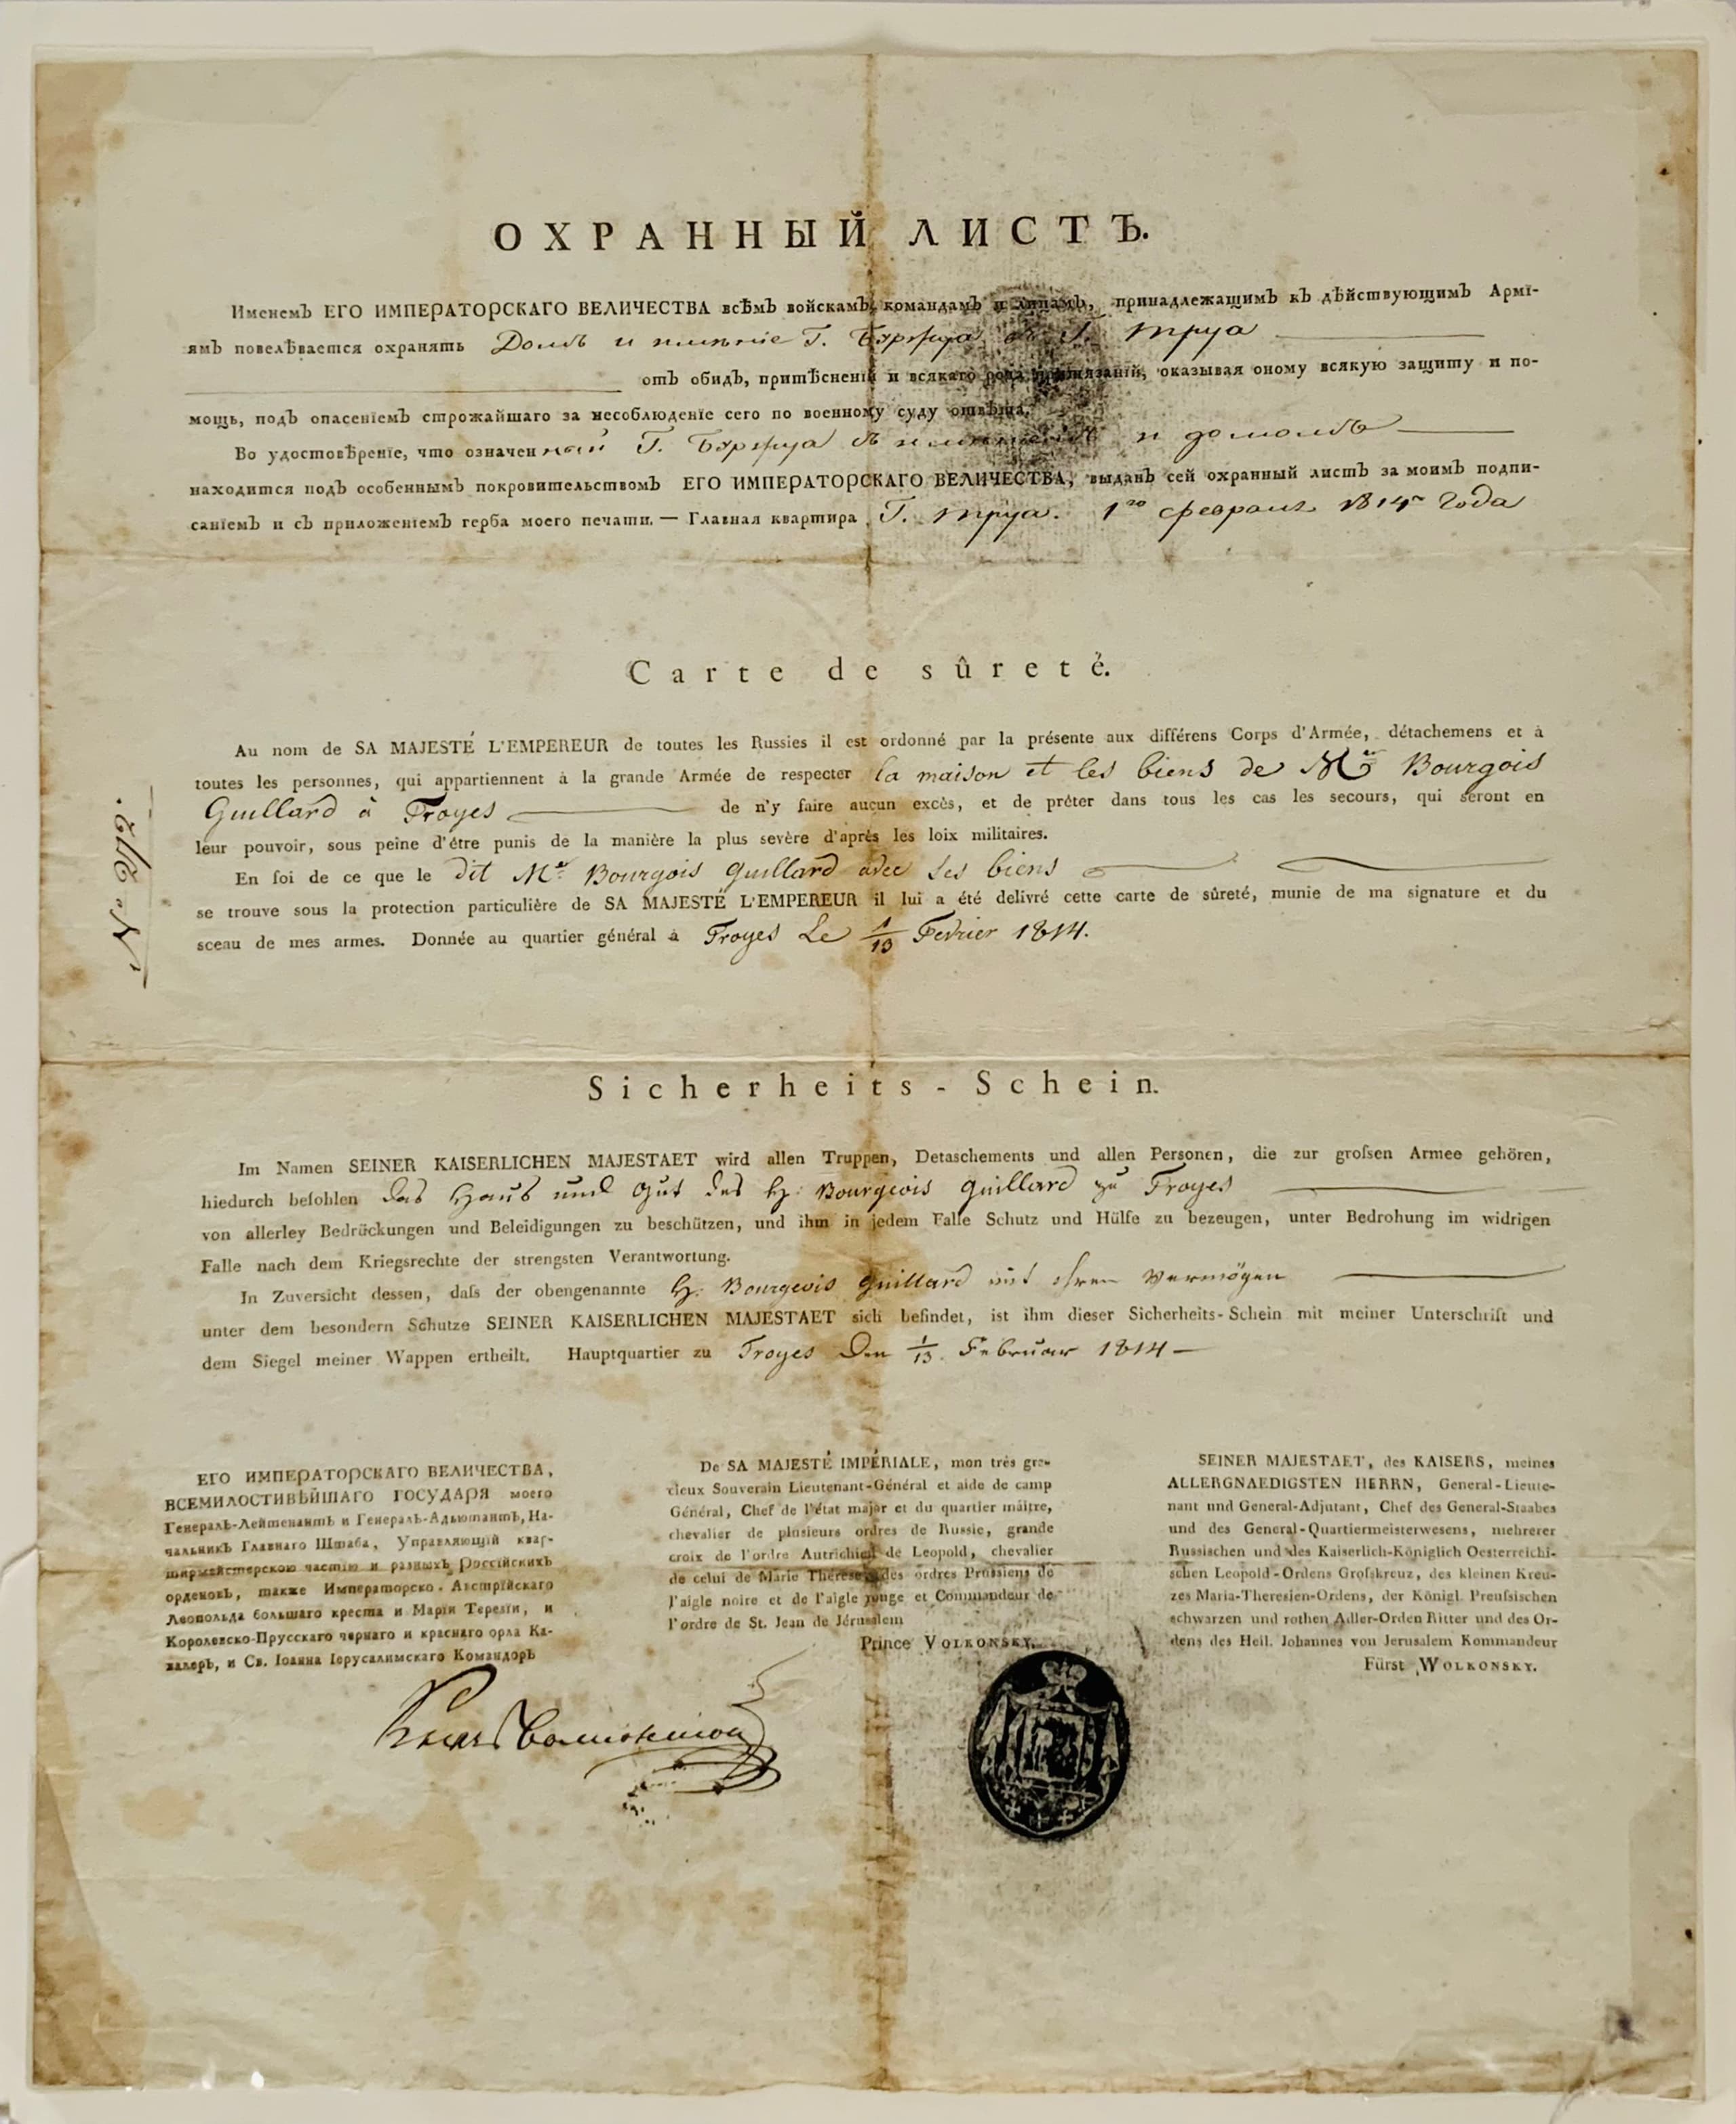 ОХРАННЫЙ ЛИСТЪ.
Именемъ ЕГО ИМПЕРАТОРСКАГО ВЕЛИЧЕСТВА всѣмъ войскамъ, командамъ и лицамъ, принадлежащимъ къ дѣйствующимъ Армі-
ямъ повелѣвается охранять Домъ и имѣніе Г. Буржуа въ Г. Труа
отъ обидъ, притѣсненій и всякаго рода притязаній, оказывая оному всякую защиту и по-
мощь, подъ опасеніемъ строжайшаго за несоблюденіе сего по военному суду отвѣта.
Во удостовѣреніе, что означенный Г. Буржуа съ имѣніемъ и домомъ
находится подъ особеннымъ покровительствомъ ЕГО ИМПЕРАТОРСКАГО ВЕЛИЧЕСТВА, выданъ сей охранный листъ за моимъ подпи-
саніемъ и съ приложеніемъ герба моего печати. — Главная квартира Г. Труа. 1го февраля 1814 года
Carte de sûreté.
Au nom de SA MAJESTÉ L'EMPEREUR de toutes les Russies il est ordonné par la présente aux différens Corps d'Armée, détachemens et à
toutes les personnes, qui appartiennent à la grande Armée de respecter la maison et les biens de Mr Bourgois
Guillard à Troyes de n'y faire aucun excès, et de prêter dans tous les cas les secours, qui seront en
leur pouvoir, sous peine d'être punis de la manière la plus sevère d'après les loix militaires.
En foi de ce que le dit Mr Bourgois Guillard avec ses biens
se trouve sous la protection particulière de SA MAJESTÉ L'EMPEREUR il lui a été delivré cette carte de sûreté, munie de ma signature et du
sceau de mes armes. Donnée au quartier général à Troyes Le 1/13 Fevrier 1814.
No 212.
Sicherheits-Schein.
Im Namen SEINER KAISERLICHEN MAJESTAET wird allen Truppen, Detaschements und allen Personen, die zur grofsen Armee gehören,
hiedurch befohlen das Haus und Gut des H: Bourgeois Guillard zu Troyes
von allerley Bedrückungen und Beleidigungen zu beschützen, und ihm in jedem Falle Schutz und Hülfe zu bezeugen, unter Bedrohung im widrigen
Falle nach dem Kriegsrechte der strengsten Verantwortung.
In Zuversicht dessen, dafs der obengenannte H: Bourgeois Guillard mit ihren Vermögen
unter dem besondern Schutze SEINER KAISERLICHEN MAJESTAET sich befindet, ist ihm dieser Sicherheits-Schein mit meiner Unterschrift und
dem Siegel meiner Wappen ertheilt. Hauptquartier zu Troyes Den 1/13. Februar 1814 —
ЕГО ИМПЕРАТОРСКАГО ВЕЛИЧЕСТВА,
ВСЕМИЛОСТИВѢЙШАГО ГОСУДАРЯ моего
Генералъ-Лейтенантъ и Генералъ-Адъютантъ, На-
чальникъ Главнаго Штаба, Управляющій квар-
тирмейстерскою частію и разныхъ Россійскихъ
орденовъ, также Императорско-Австрійскаго
Леопольда большаго креста и Маріи Терезіи, и
Королевско-Прусскаго чернаго и краснаго орла Ка-
валеръ, и Св. Іоанна Іерусалимскаго Командоръ
De SA MAJESTÉ IMPÉRIALE, mon très gra-
cieux Souverain Lieutenant-Général et aide de camp
Général, Chef de l'état major et du quartier maître,
chevalier de plusieurs ordres de Russie, grande
croix de l'ordre Autrichien de Leopold, chevalier
de celui de Marie Therese, des ordres Prussiens de
l'aigle noire et de l'aigle rouge et Commandeur de
l'ordre de St. Jean de Jérusalem
Prince VOLKONSKY.
SEINER MAJESTAET, des KAISERS, meines
ALLERGNAEDIGSTEN HERRN, General-Lieute-
nant und General-Adjutant, Chef des General-Staabes
und des General-Quartiermeisterwesens, mehrerer
Russischen und des Kaiserlich-Königlich Oesterreichi-
schen Leopold-Ordens Grofskreuz, des kleinen Kreu-
zes Maria-Theresien-Ordens, der Königl. Preufsischen
schwarzen und rothen Adler-Orden Ritter und des Or-
dens des Heil. Johannes von Jerusalem Kommandeur
Fürst WOLKONSKY.